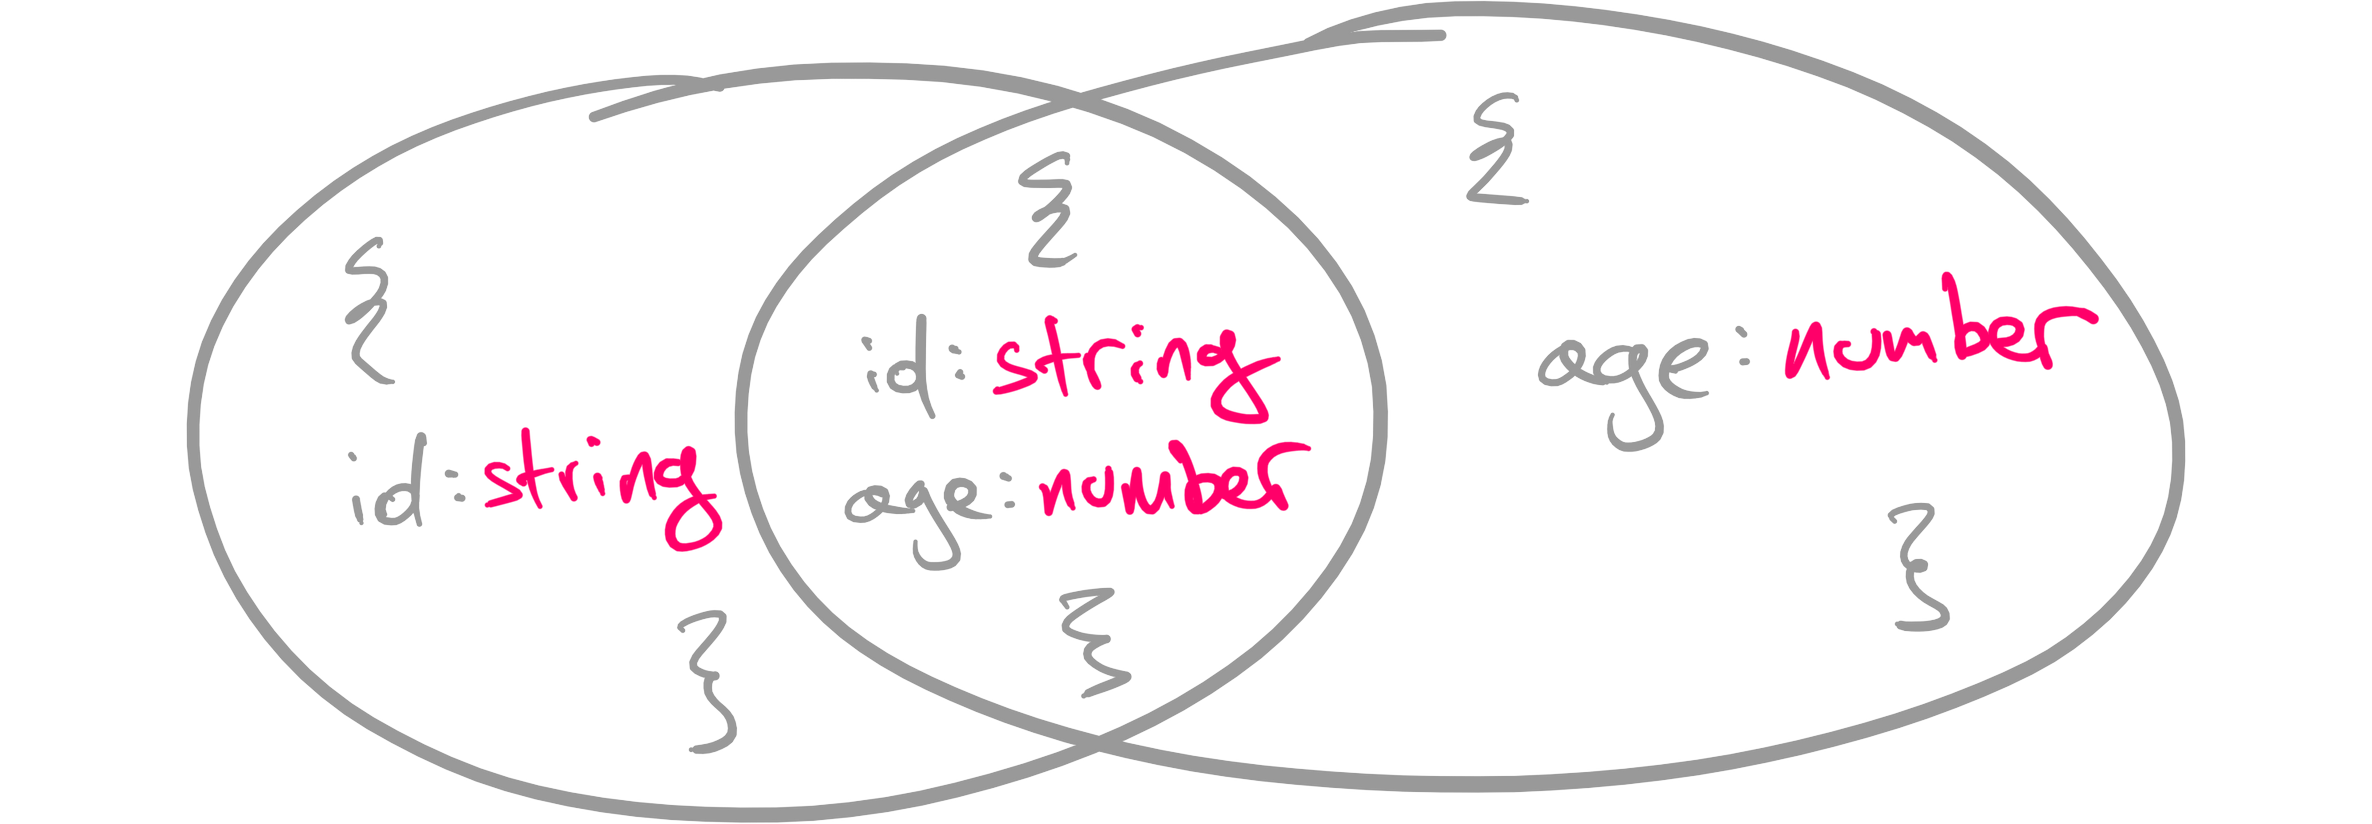 {
id: string
}
{
id: string
age: number
}
{
age: number
}